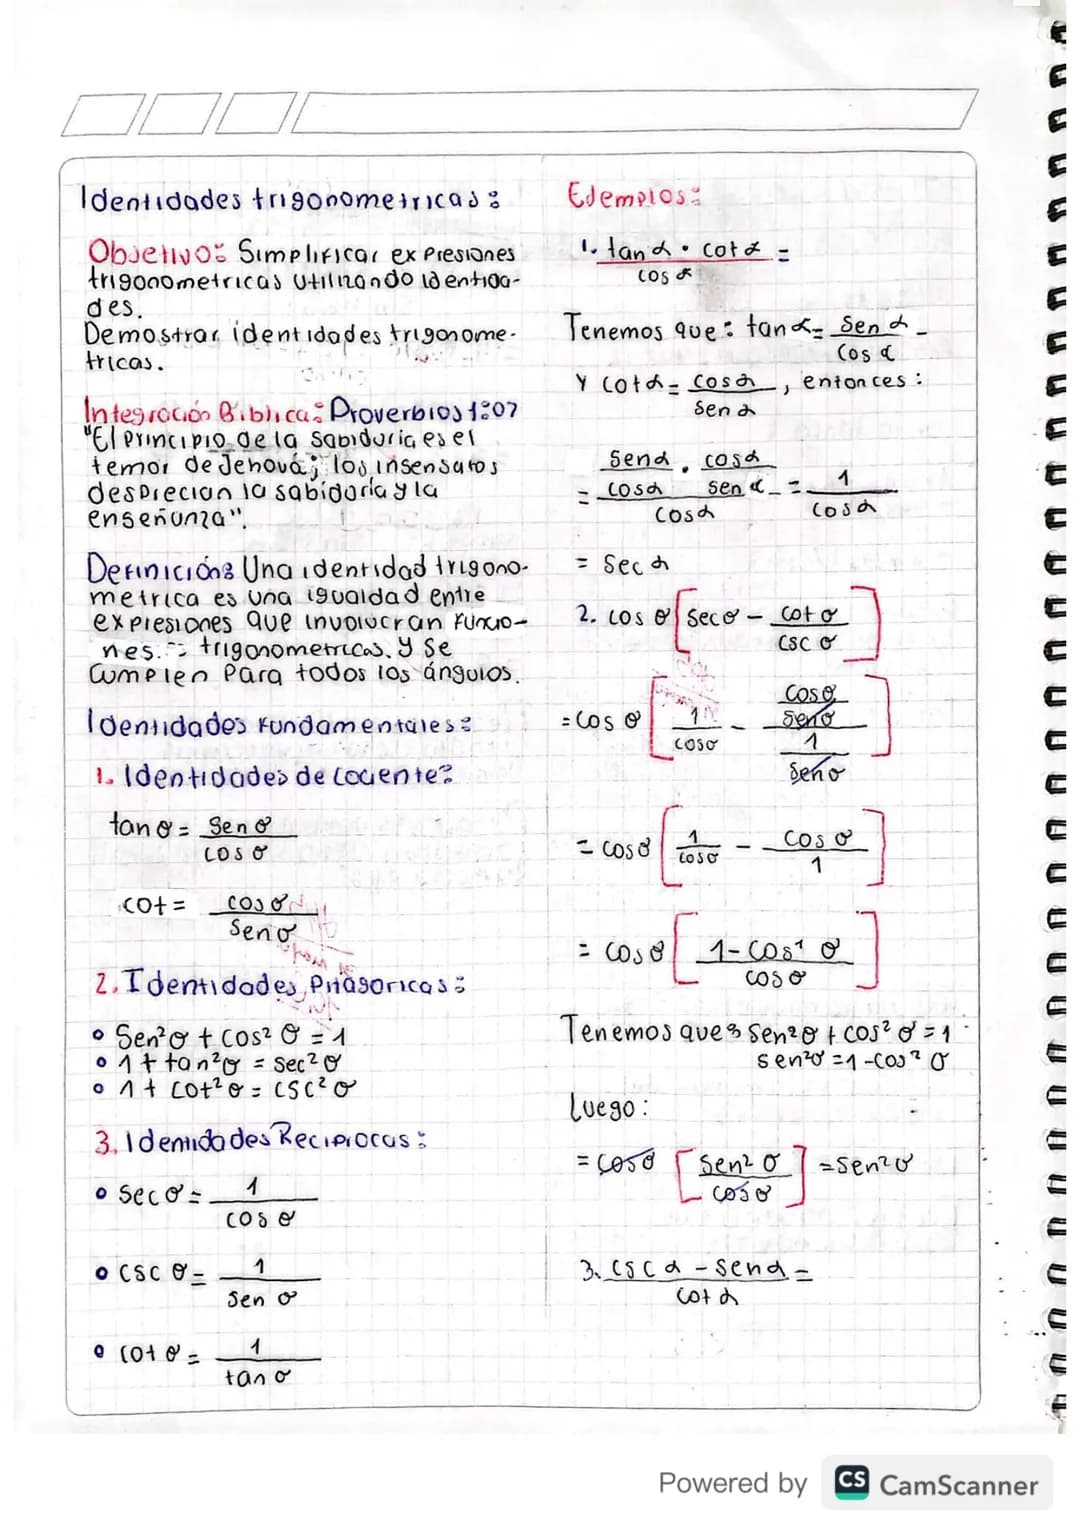 Identidades trigonometricas:
Objetivo: Simplificar expresiones
trigonometricas utilizando identida-
des.
Demostrar identidades trigonome-
tricas.
Integración Biblica: Proverbios 1:07
"El principio de la sabiduria es el
temor de Jehová; los insensatos
desprecian la sabiduria y la
enseñanza".
Definición: Una identidad trigono-
metrica es una igualdad entre
expresiones que involucran funcio-
nes. trigonometricas. y se
cumplen para todos los ángulos.
Identidades Fundamentales:
1. Identidades de cociente:
tan θ = Sen θ
cos θ
cot = cos θ
Sen θ
2. Identidades Pitagoricas:
• Sen²θ + cos² θ = 1
• 1 + tan²θ = Sec² θ
• 1 + cot² θ = csc² θ
3. Identidades Reciprocas:
• Sec θ = 1
cos θ
• csc θ = 1
Sen θ
• cot θ = 1
tan θ
Ejemplos:
1. tan α • cot α =
cos α
Tenemos que: tan α = Sen α
cos α
Y cot α = cos α, entonces:
Sen α
Sen α . cos α
= cos α Sen α = 1
cos α cos α
= Sec α
2. cos θ [ Sec θ - cot θ ]
csc θ
= cos θ [ 1 - cos θ
cos θ Sen θ ]
1
Sen θ
= cos θ [ 1 - cos θ ]
cos θ 1
= cos θ [ 1 - cos¹ θ ]
cos θ
Tenemos que: Sen²θ + cos² θ = 1
sen²θ = 1 - cos² θ
Luego:
= cos θ [ Sen² θ ] = Sen² θ
cos θ
3. csc α - sen α =
cot α
Powered by CS CamScanner